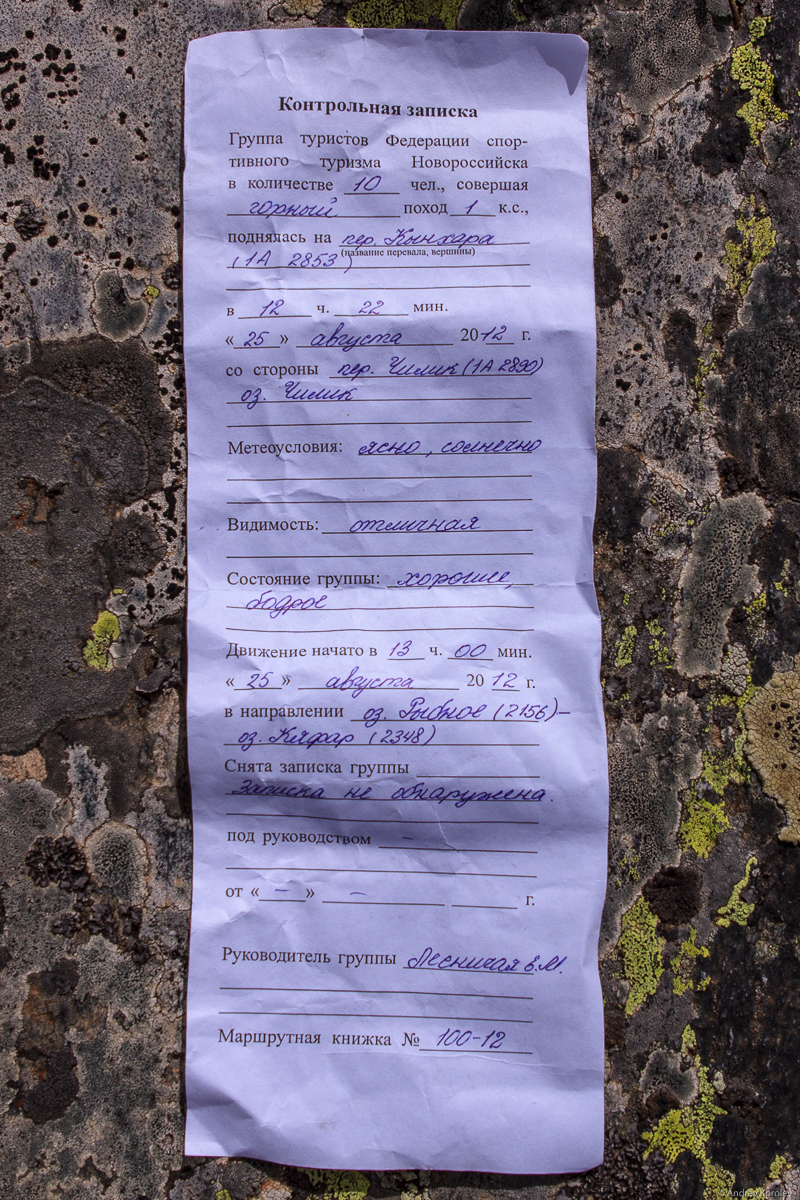 Контрольная записка
Группа туристов Федерации спор-
тивного туризма Новороссийска
в количестве 10 чел., совершая
горный поход 1 к.с.,
поднялась на пер. Кынхара
(название перевала, вершины)
(1А 2853)
в 12 ч. 22 мин.
« 25 » августа 2012 г.
со стороны пер. Чилик (1А 2890)
оз. Чилик
Метеоусловия: ясно, солнечно
Видимость: отличная
Состояние группы: хорошее,
бодрое
Движение начато в 13 ч. 00 мин.
« 25 » августа 20 12 г.
в направлении оз. Рыбное (2156)–
оз. Кяфар (2348)
Снята записка группы
Записка не обнаружена.
под руководством –
от « – » – г.
Руководитель группы Лесничая В.М.
Маршрутная книжка № 100-12